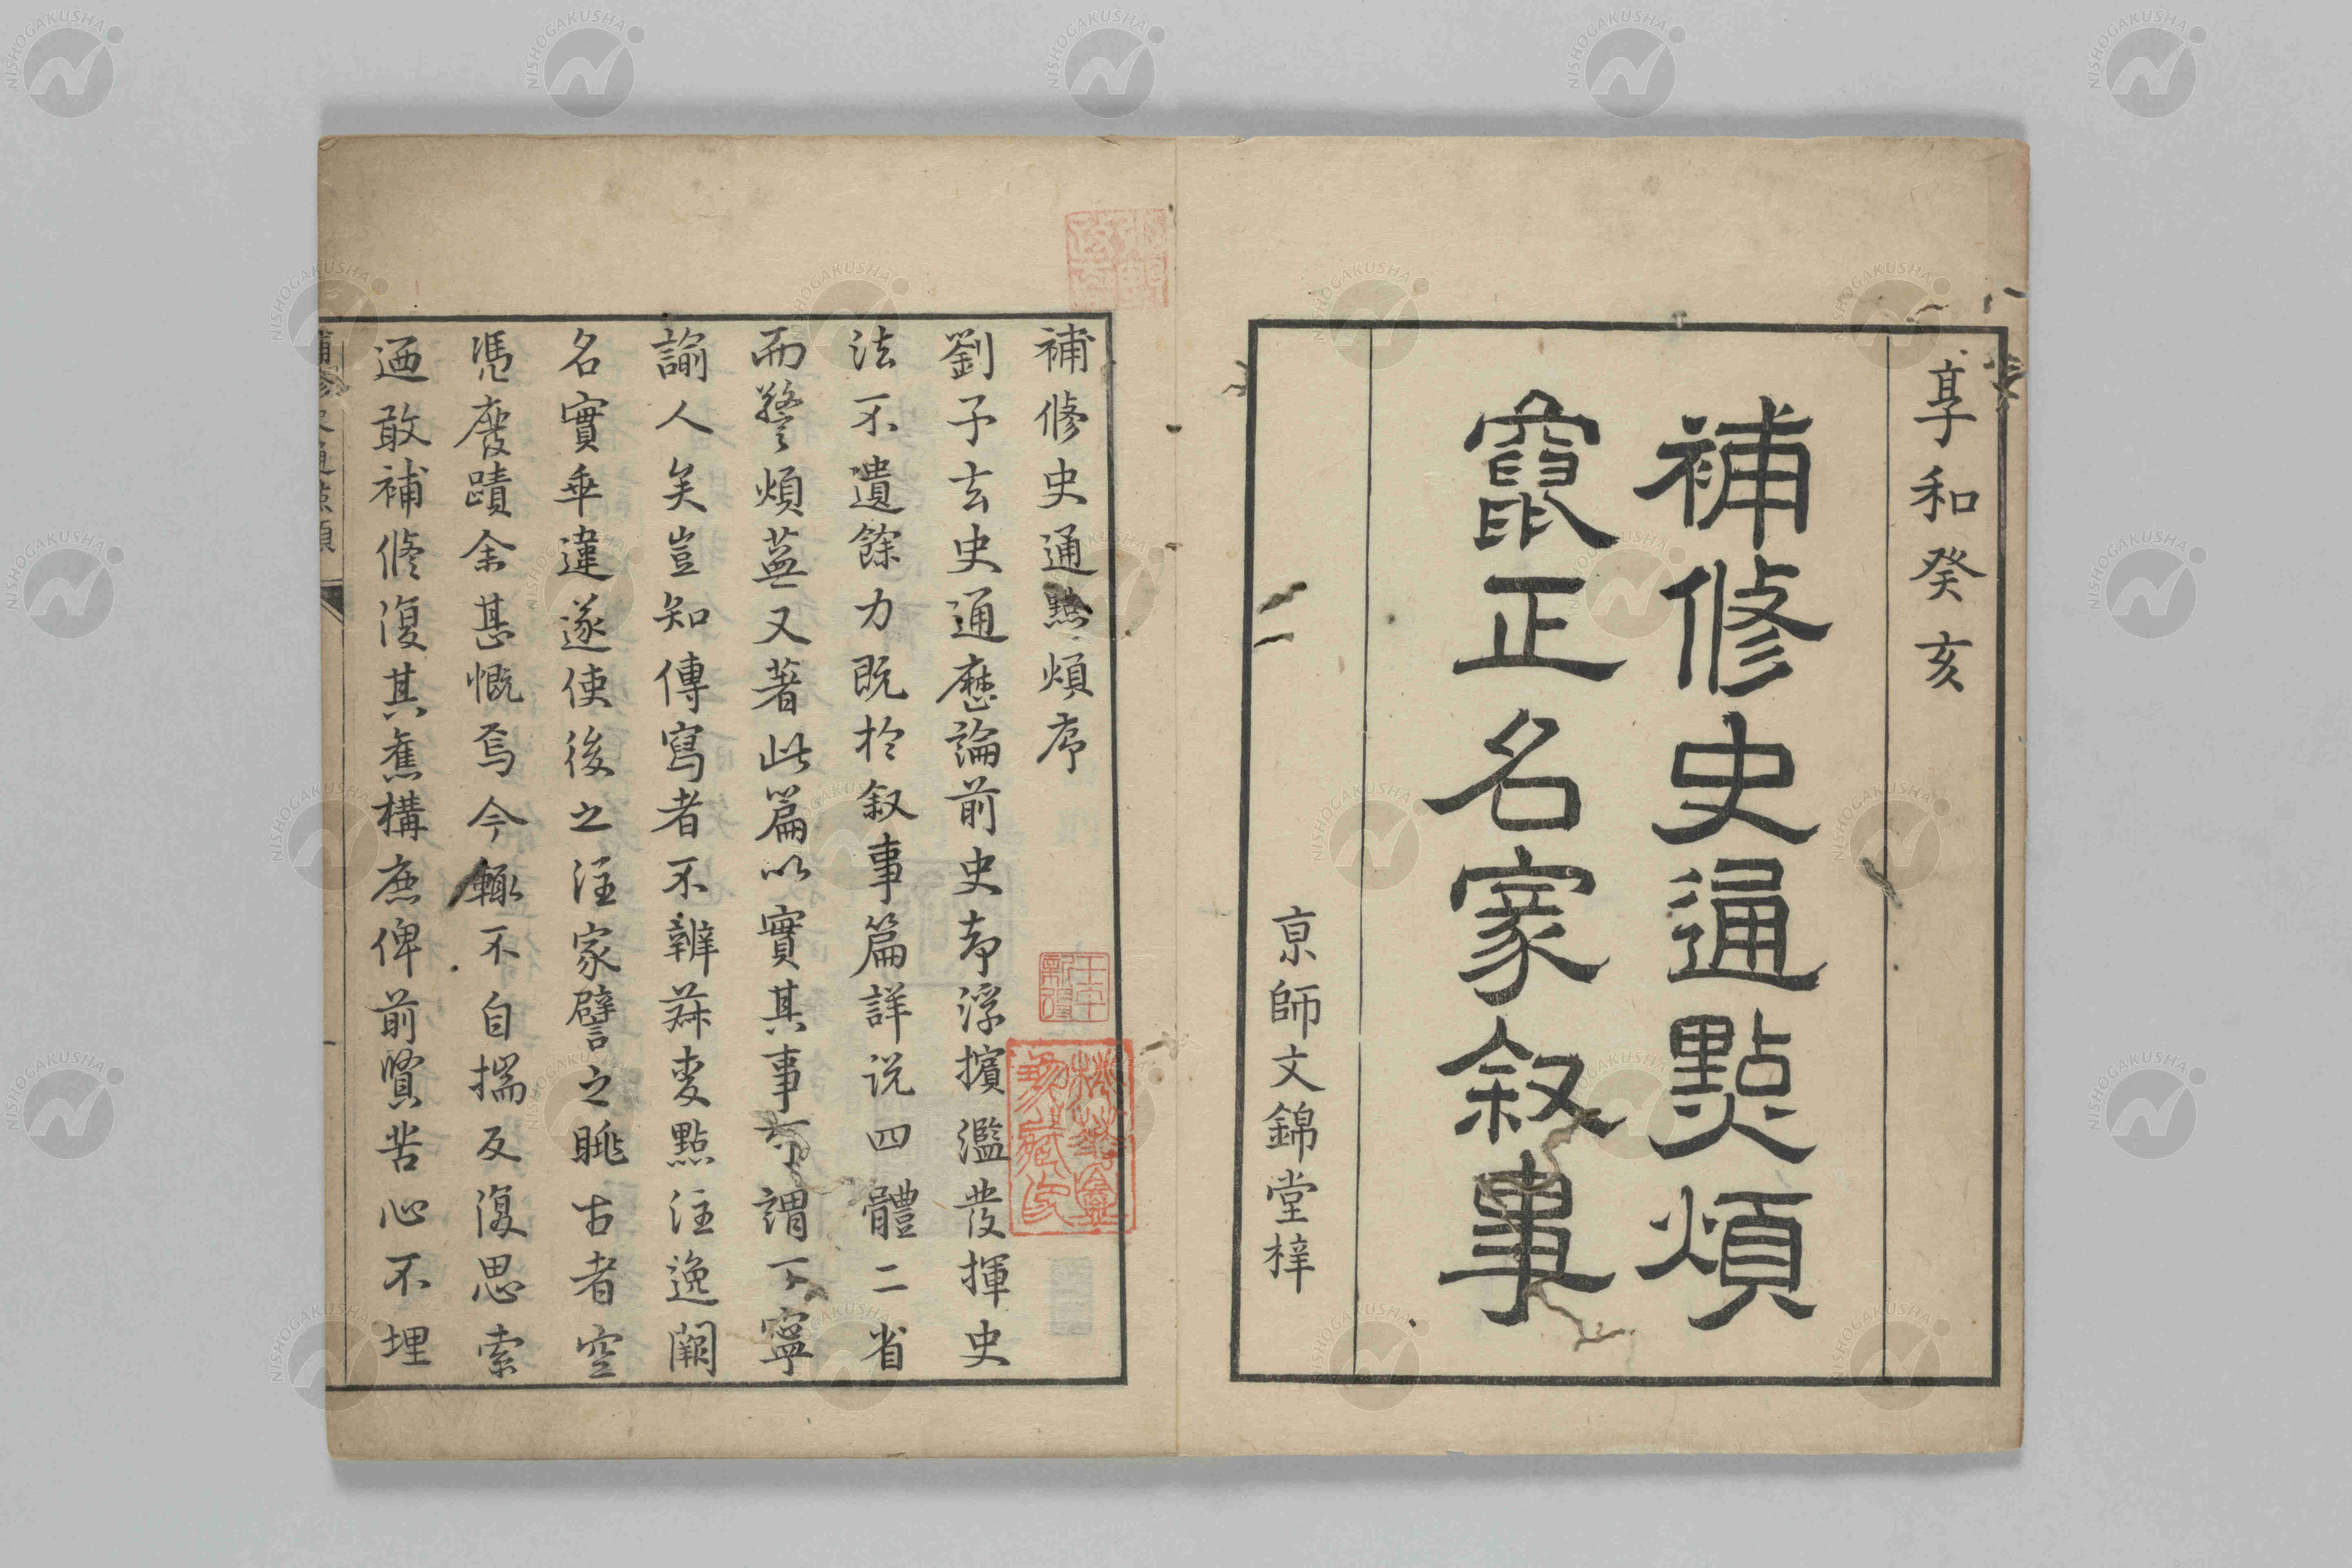 享和癸亥
補修史通點煩
竄正名家叙事
京師文錦堂梓
補修史通點煩序
劉子玄史通歷論前史夸浮擯濫發揮史
法不遺餘力既於叙事篇詳说四體二省
而警煩蕪又著此篇以實其事可謂丁寧
諭人矣豈知傳寫者不辨荐変點注逸闕
名實乖違遂使後之注家譬之眺古者空
憑廢蹟余甚慨焉今輙不自揣反復思索
迺敢補修復其舊構庶俾前賢苦心不埋
補修史通點煩
NISHOGAKUSHA